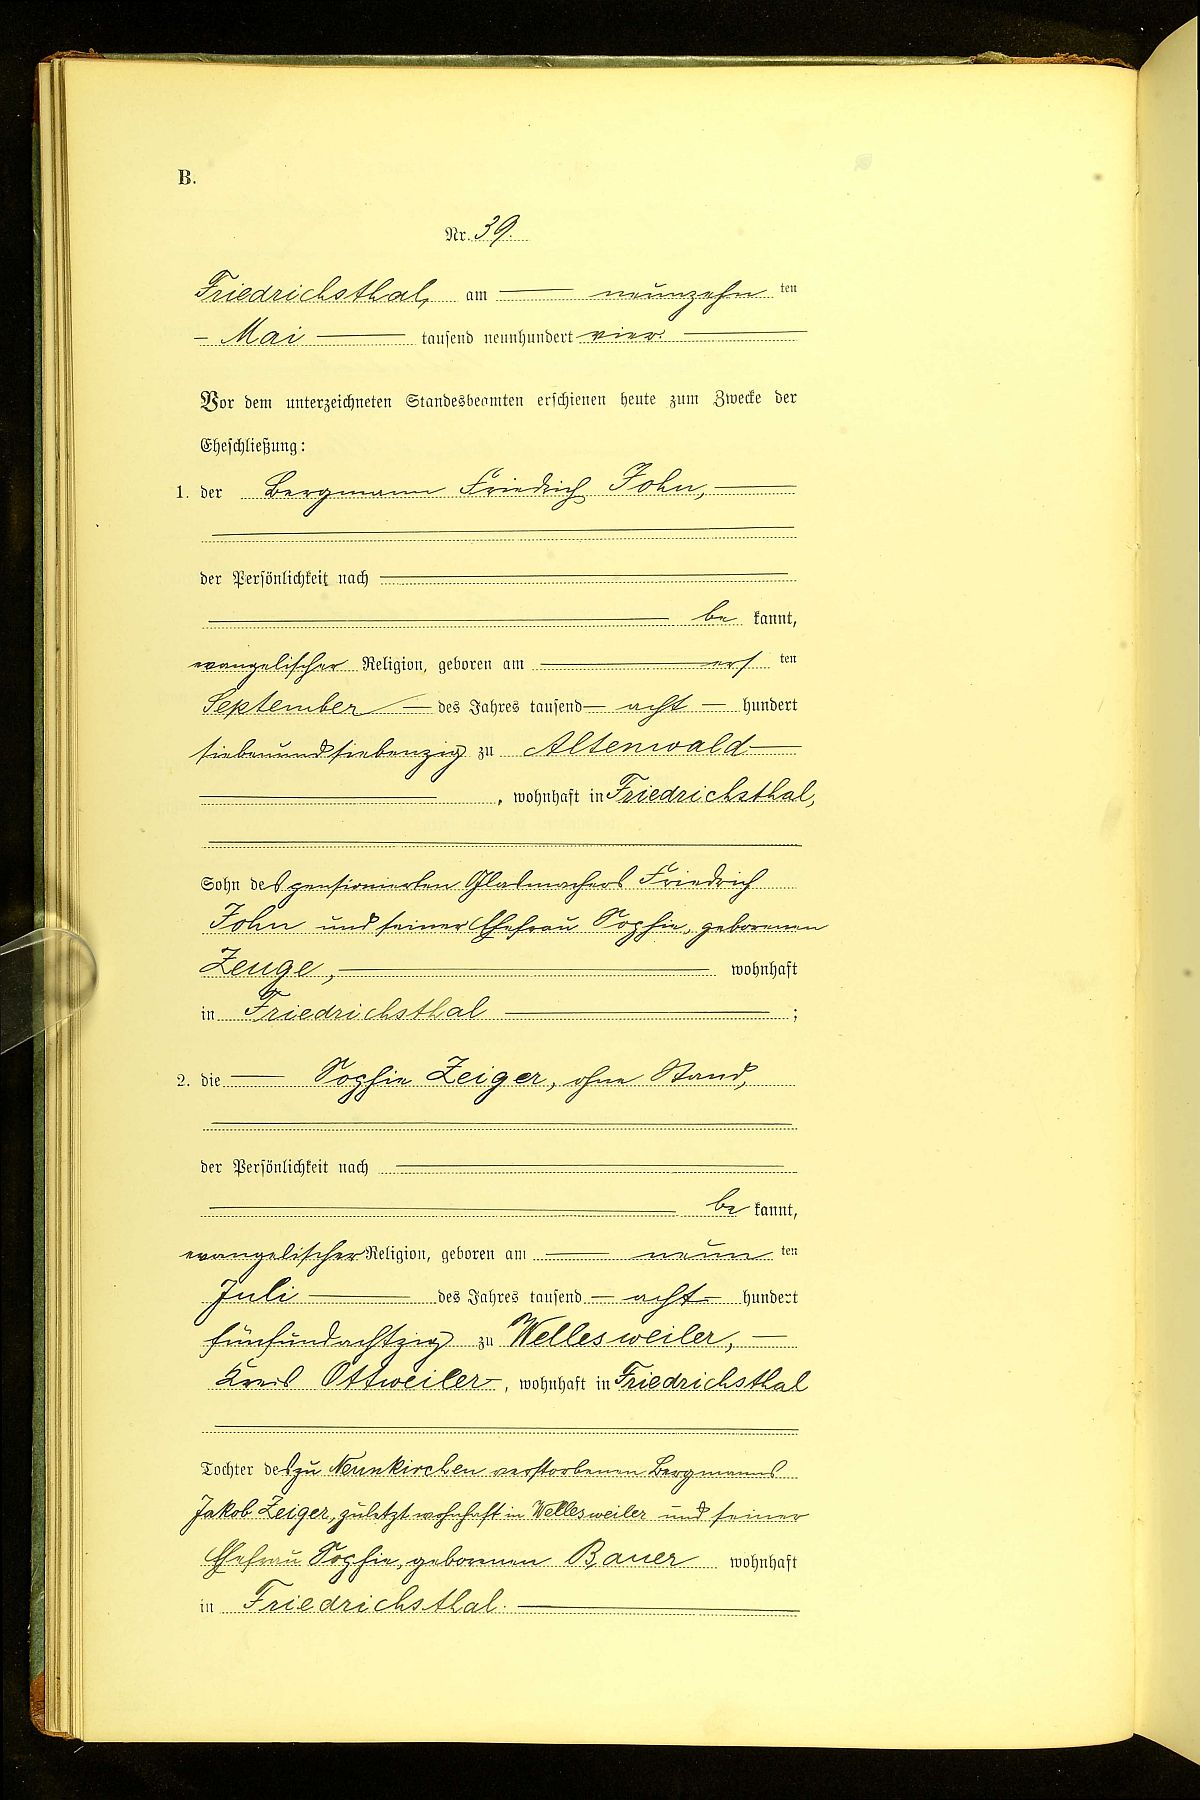 B.
Nr. 39.
Friedrichsthal, am neunzehn ten
Mai tausend neunhundert vier.
Vor dem unterzeichneten Standesbeamten erschienen heute zum Zwecke der
Eheschließung:
1. der Bergmann Friedrich John,
der Persönlichkeit nach
be kannt,
evangelischer Religion, geboren am ers ten
September des Jahres tausend acht hundert
siebenundsiebenzig zu Altenwald
, wohnhaft in Friedrichsthal,
Sohn des pensionierten Glasmachers Friedrich
John und seiner Ehefrau Sophie, geborenen
Zeuge, wohnhaft
in Friedrichsthal ;
2. die Sophie Zeiger, ohne Stand,
der Persönlichkeit nach
be kannt,
evangelischer Religion, geboren am neun ten
Juli des Jahres tausend acht hundert
fünfundachtzig zu Wellesweiler,
Kreis Ottweiler, wohnhaft in Friedrichsthal
Tochter des zu Neunkirchen verstorbenen Bergmanns
Jakob Zeiger, zuletzt wohnhaft in Wellesweiler und seiner
Ehefrau Sophie, geborenen Bauer wohnhaft
in Friedrichsthal.